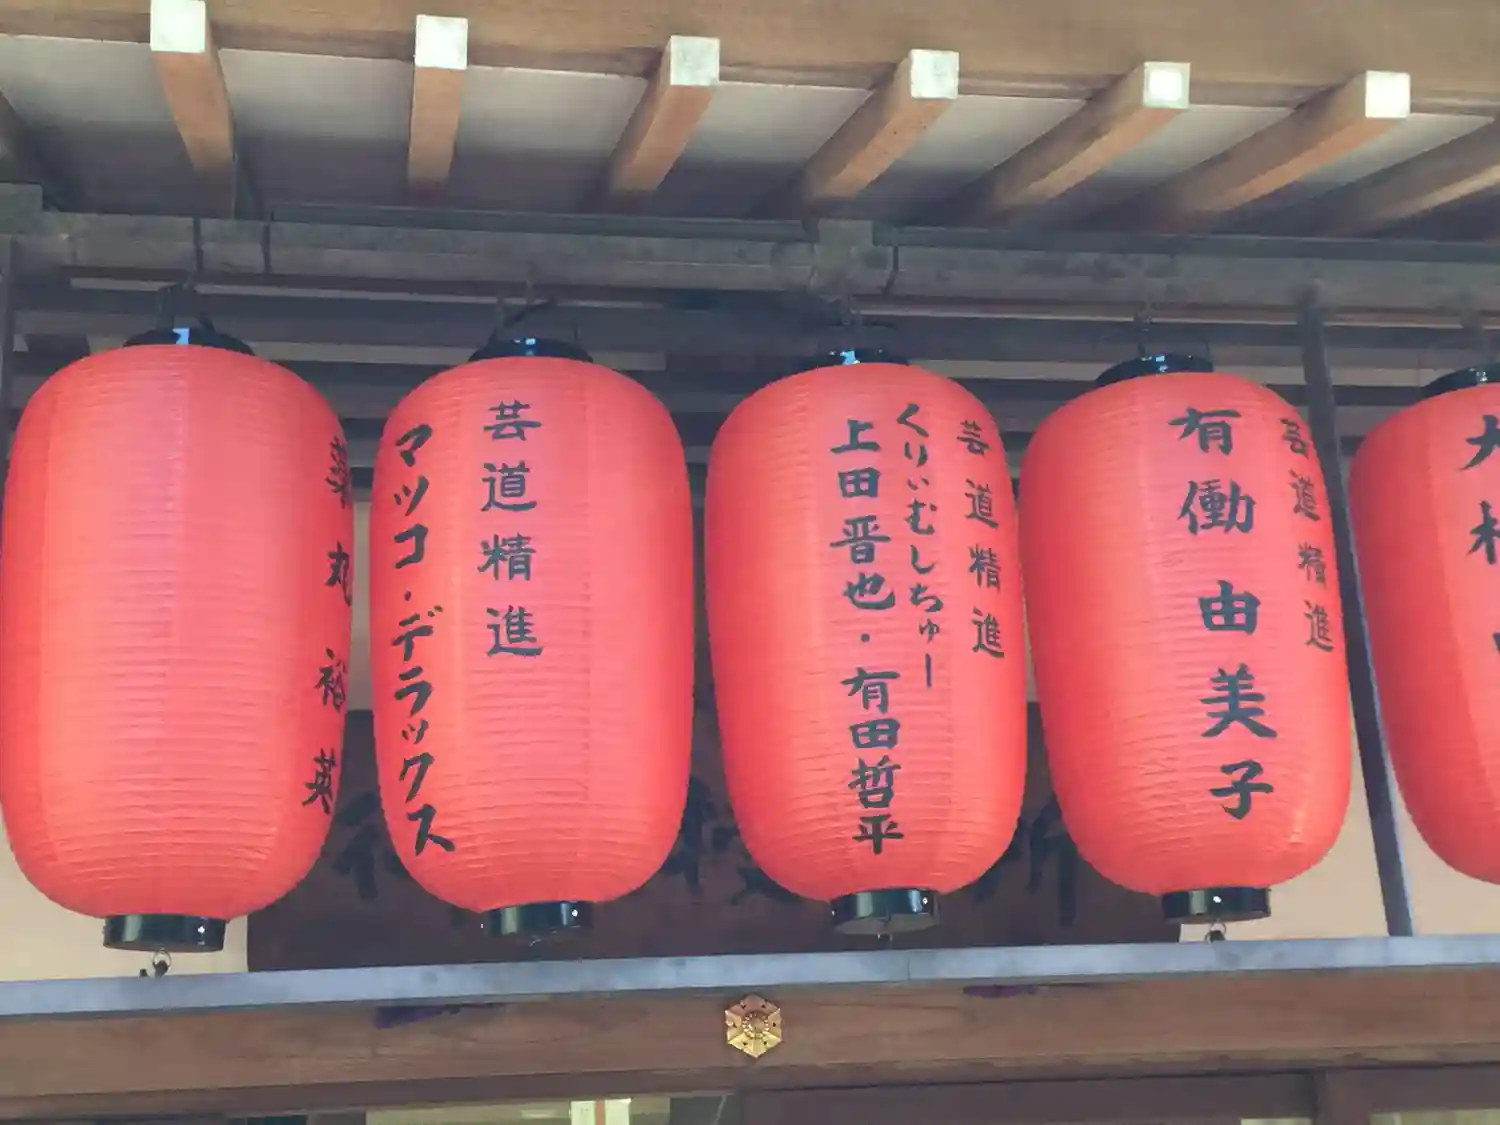 芸道精進
有働由美子
芸道精進
くりぃむしちゅー
上田晋也・有田哲平
芸道精進
マツコ・デラックス
薬丸裕英